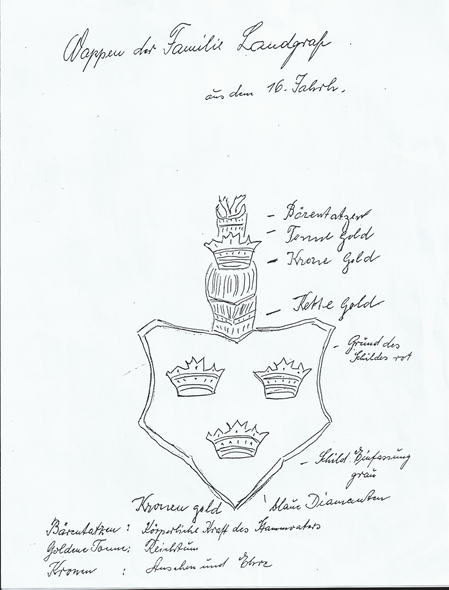 Wappen der Familie Landgraf
aus dem 16. Jahrh.
- Bärentatzen
- Tonne Gold
- Krone Gold
- Kette Gold
- Grund des
Schildes rot
- Schild Einfassung
grau
Kronen gold
blaue Diamanten
Bärentatzen: Körperliche Kraft des Stammvaters
Goldene Tonne: Reichtum
Kronen : Ansehen und Ehre